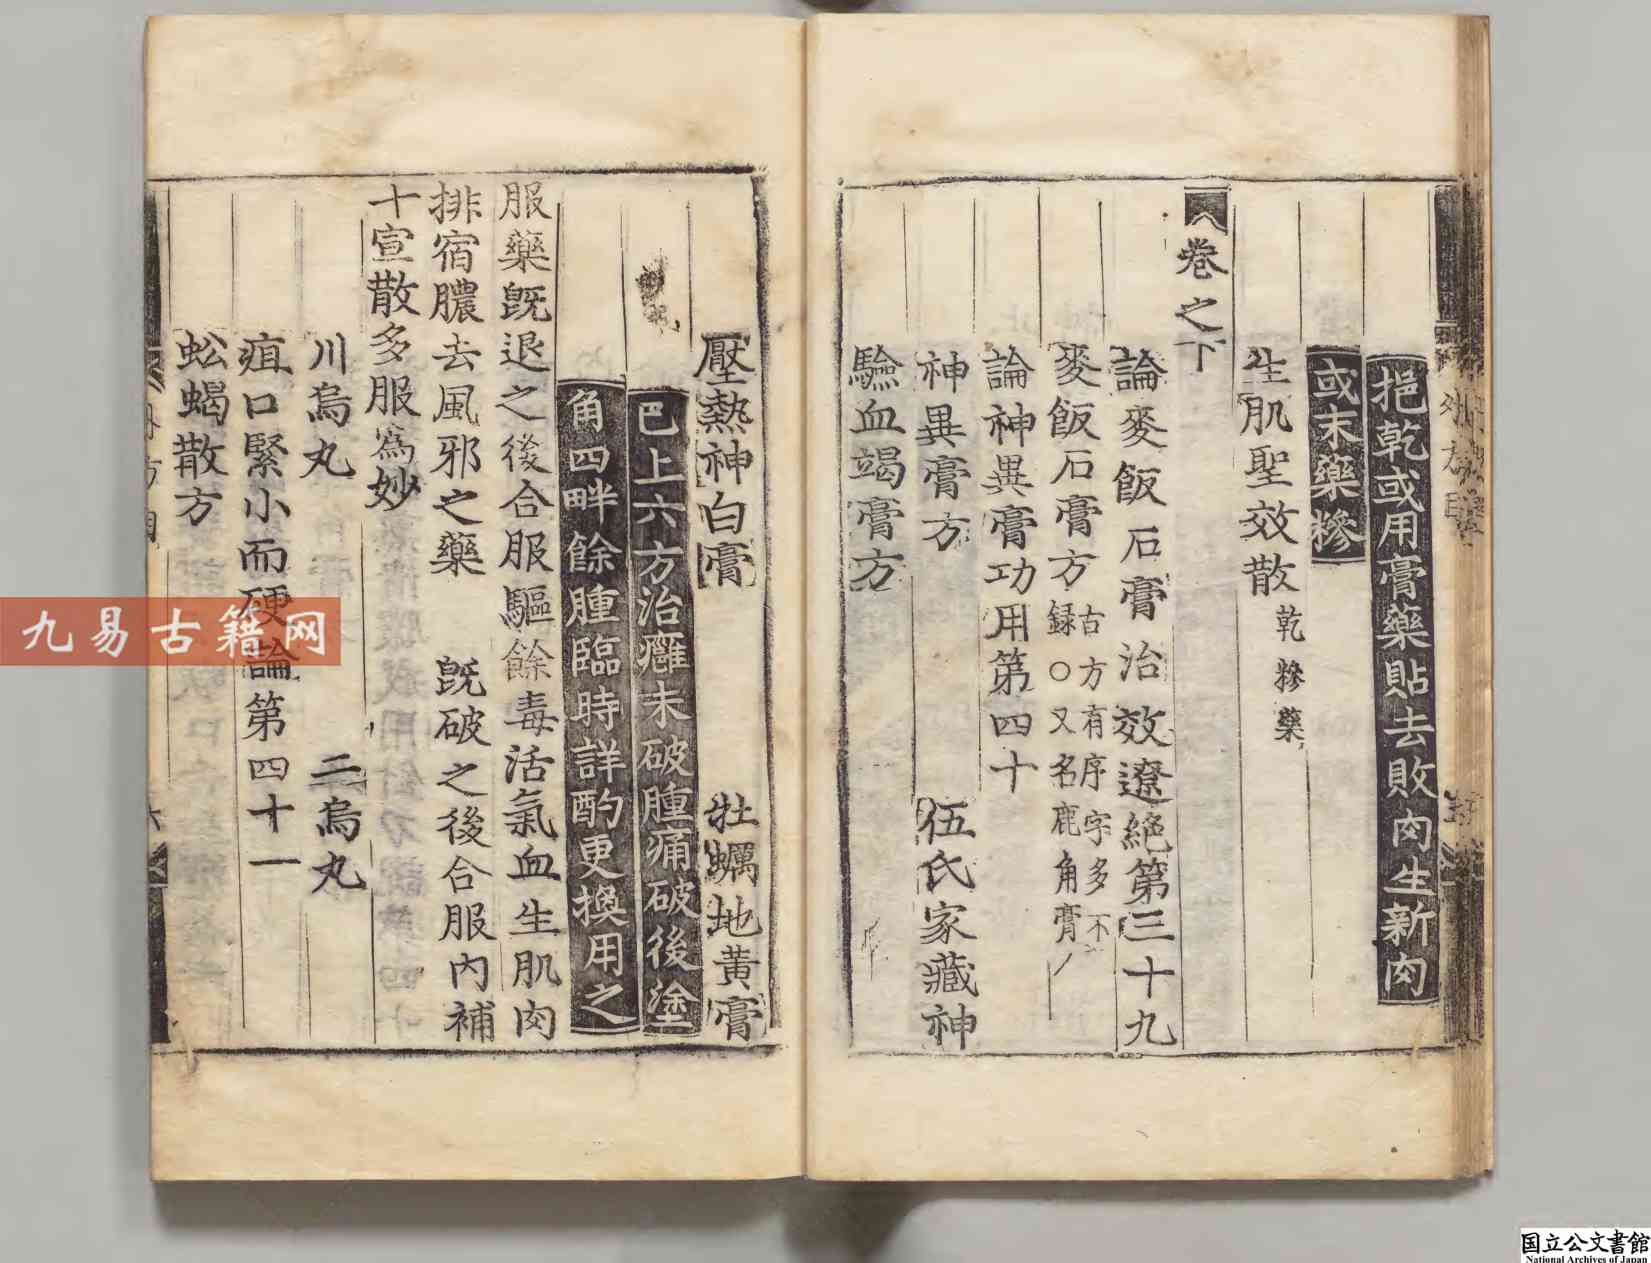 挹乾或用膏藥貼去敗肉生新肉
或末藥摻
生肌聖效散 乾摻藥
卷之下
論麥飯石膏治效遼絶第三十九
麥飯石膏方 古方有序字多不
録○又名鹿角膏
論神異膏功用第四十
神異膏方 伍氏家藏神
驗血竭膏方
壓熱神白膏 牡蠣地黃膏
已上六方治癰未破腫痛破後塗
角四畔餘腫臨時詳酌更換用之
服藥旣退之後合服驅餘毒活氣血生肌肉
排宿膿去風邪之藥 旣破之後合服內補
十宣散多服爲妙
川烏丸 二烏丸
疽口緊小而硬論第四十一
蚣蝎散方
九易古籍网
国立公文書館
National Archives of Japan